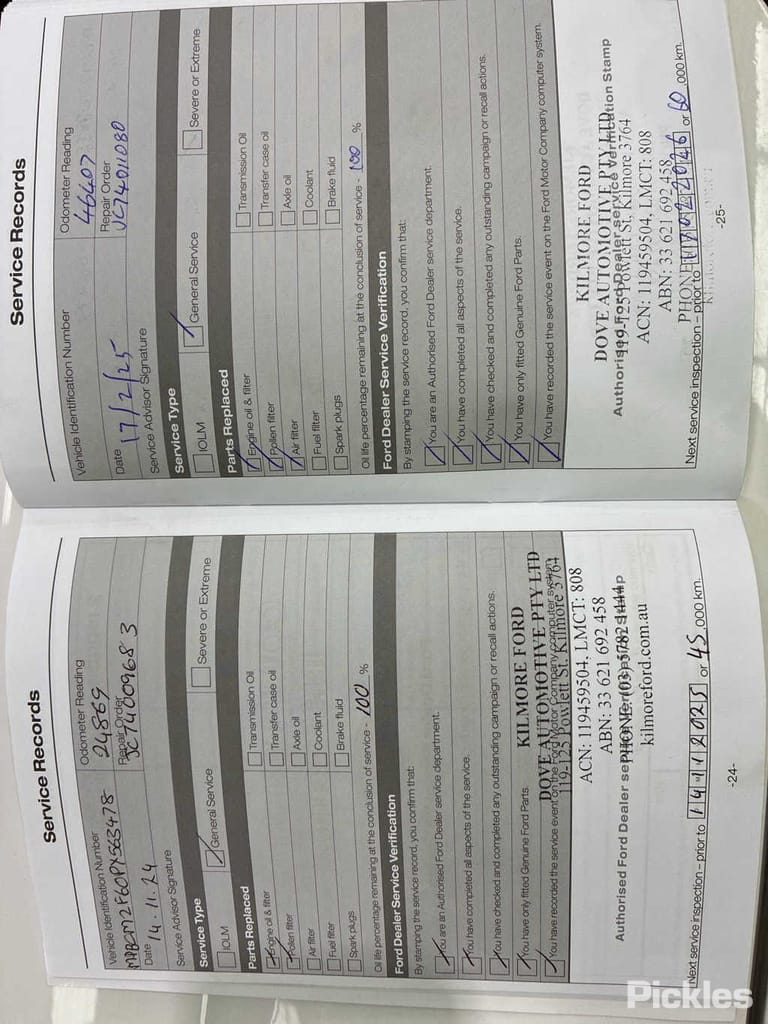 Service Records
Vehicle Identification Number
Odometer Reading
24869
Date
14.11.24
Repair Order
JC74009683
Service Advisor Signature
Service Type
IOLM
General Service
Severe or Extreme
Parts Replaced
Engine oil & filter
Transmission Oil
Pollen filter
Transfer case oil
Air filter
Axle oil
Fuel filter
Coolant
Spark plugs
Brake fluid
Oil life percentage remaining at the conclusion of service - 100 %
Ford Dealer Service Verification
By stamping the service record, you confirm that:
You are an Authorised Ford Dealer service department.
You have completed all aspects of the service.
You have checked and completed any outstanding campaign or recall actions.
You have only fitted Genuine Ford Parts.
You have recorded the service event on the Ford Motor Company computer system.
KILMORE FORD
DOVE AUTOMOTIVE PTY LTD
119-125 Powlett St, Kilmore 3764
ACN: 119459504, LMCT: 808
ABN: 33 621 692 458
Authorised Ford Dealer service Verification Stamp
kilmoreford.com.au
Next service inspection – prior to 14 11 2025 or 45 ,000 km.
-24-
Service Records
Vehicle Identification Number
Odometer Reading
46407
Date
17/2/25
Repair Order
JC74011080
Service Advisor Signature
Service Type
IOLM
General Service
Severe or Extreme
Parts Replaced
Engine oil & filter
Transmission Oil
Pollen filter
Transfer case oil
Air filter
Axle oil
Fuel filter
Coolant
Spark plugs
Brake fluid
Oil life percentage remaining at the conclusion of service - 100 %
Ford Dealer Service Verification
By stamping the service record, you confirm that:
You are an Authorised Ford Dealer service department.
You have completed all aspects of the service.
You have checked and completed any outstanding campaign or recall actions.
You have only fitted Genuine Ford Parts.
You have recorded the service event on the Ford Motor Company computer system.
KILMORE FORD
DOVE AUTOMOTIVE PTY LTD
Authorised Ford Dealer service Verification Stamp
119-125 Powlett St, Kilmore 3764
ACN: 119459504, LMCT: 808
ABN: 33 621 692 458
PHONE
Next service inspection – prior to 17 02 2026 or 60 ,000 km.
-25-
Pickles